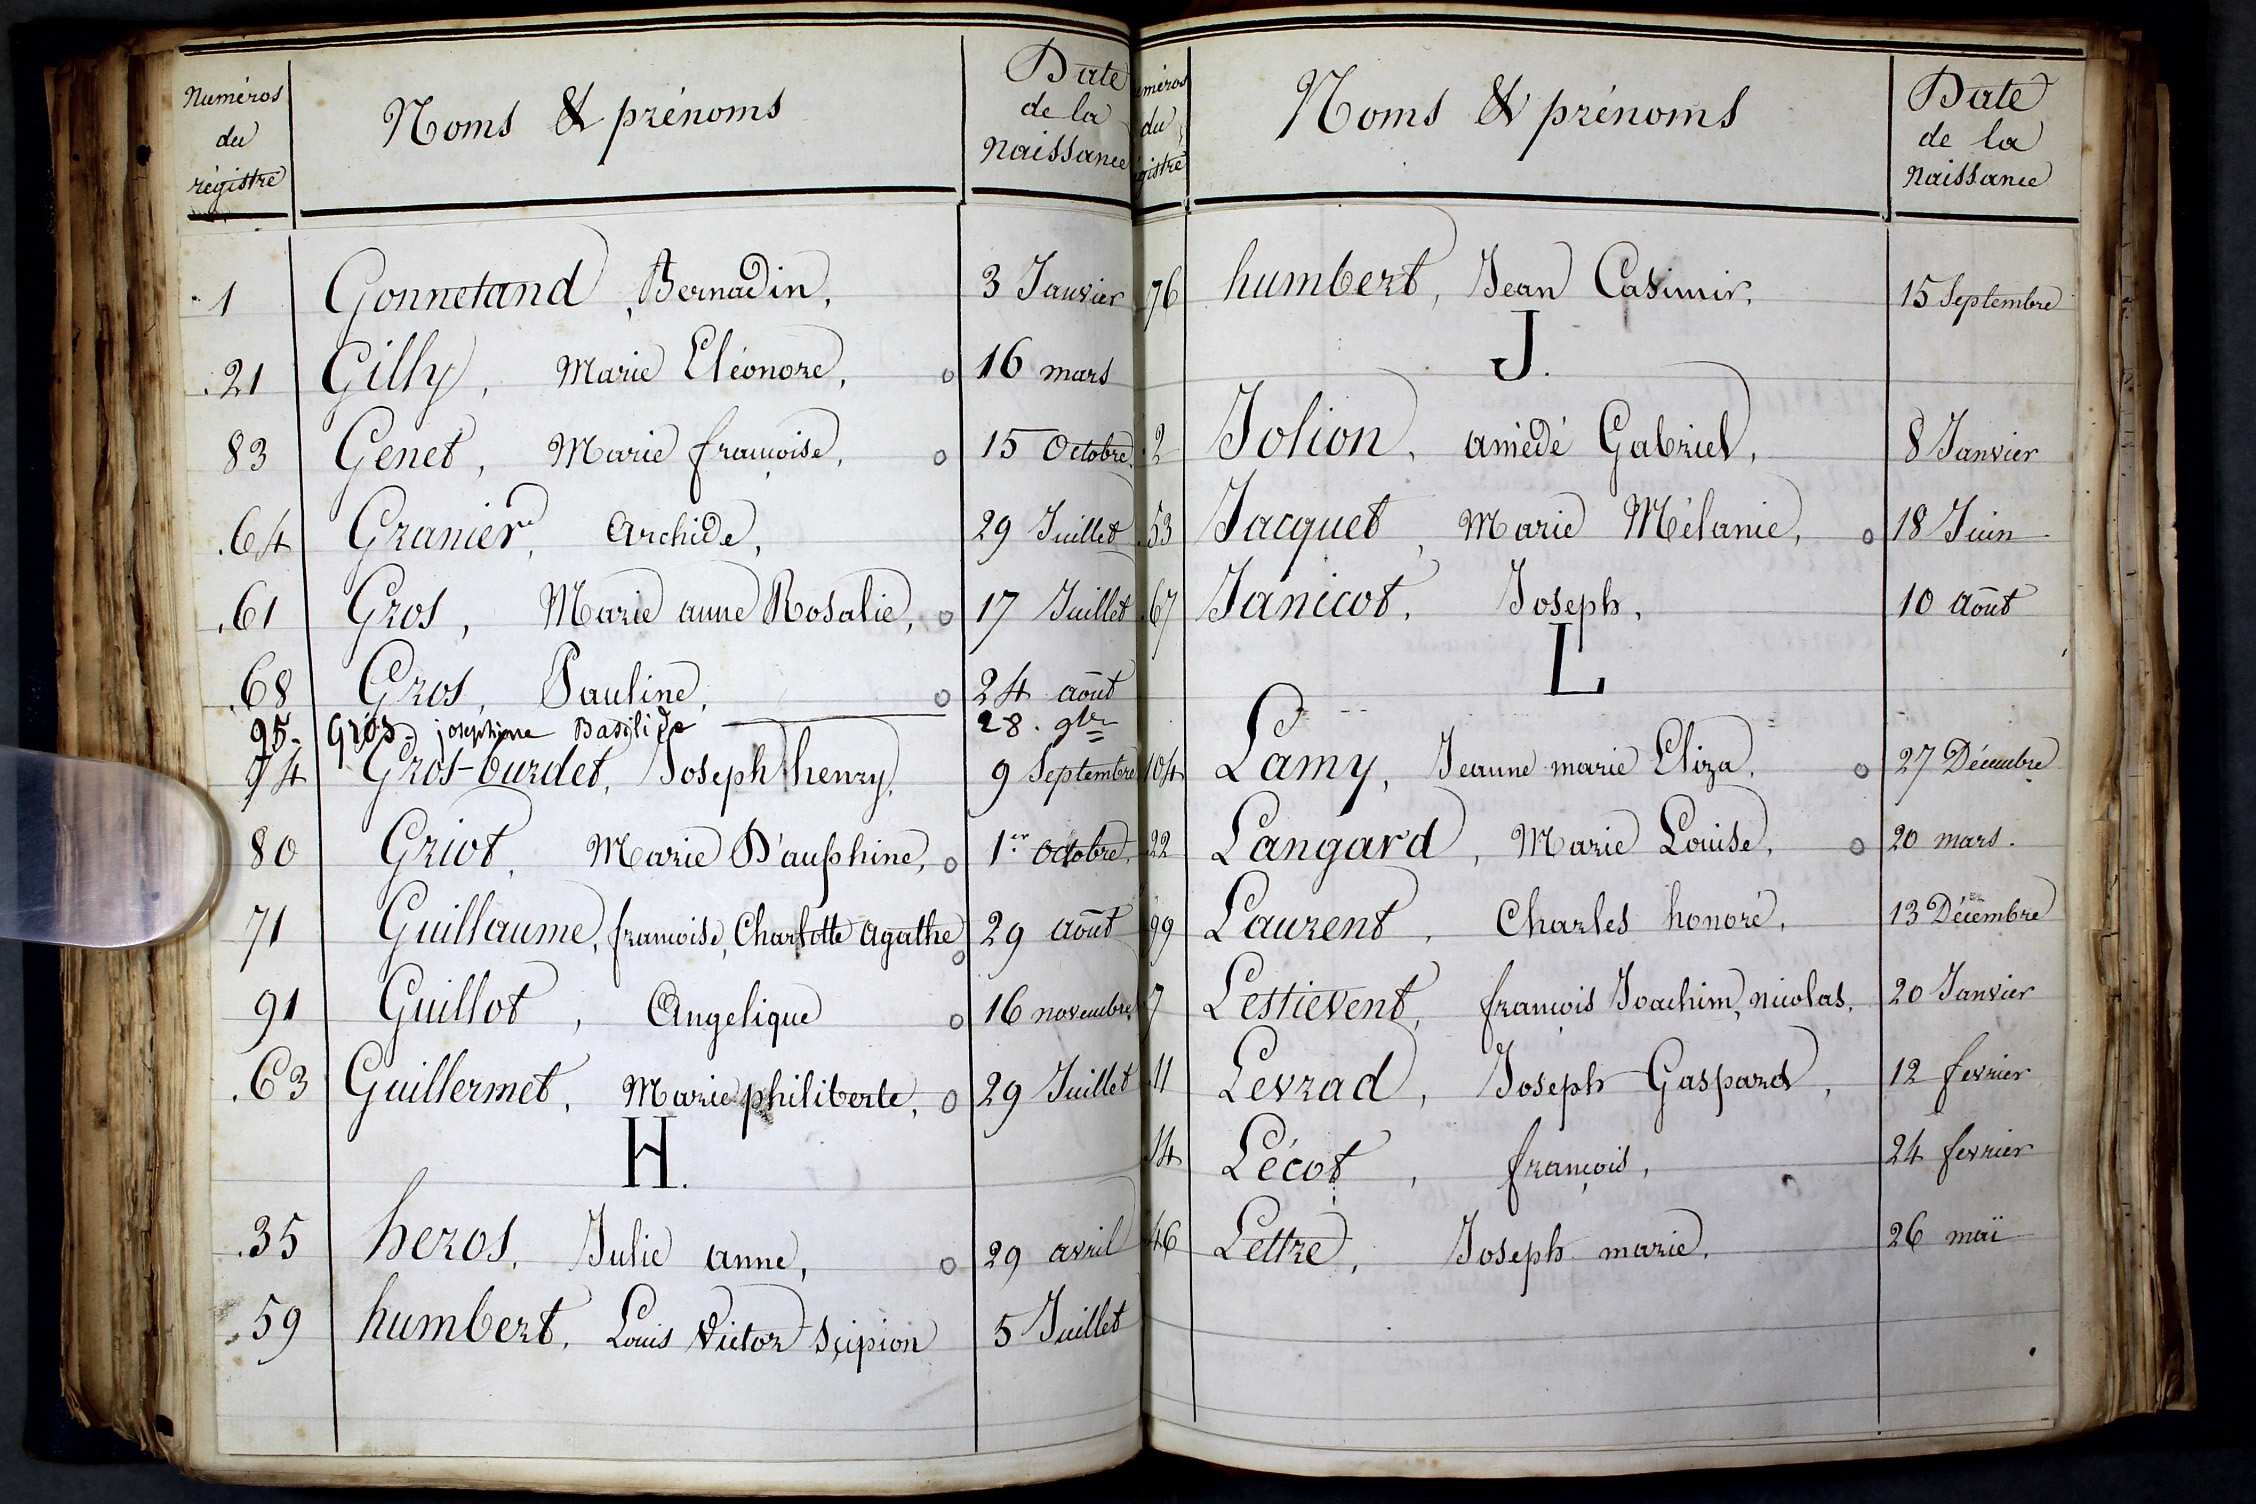 Numéros du régistre Noms & prénoms Date de la Naissance
1 Gonnetand, Bernadin, 3 Janvier
21 Gilly, Marie Eléonore, 16 mars
83 Genet, Marie françoise, 15 Octobre
64 Granier, Archide, 29 Juillet
61 Gros, Marie anne Rosalie, 17 Juillet
68 Gros, Pauline, 24 août
95. Gros. josephine Basilide 28. 9bre
74 Gros-burdet, Joseph henry, 9 Septembre
80 Griot, Marie D'auphine, 1er Octobre,
71 Guillaume, françoise, Charlotte Agathe 29 août
91 Guillot, Angelique 16 novembre
63 Guillermet, Marie philiberte, 29 Juillet
H.
35 heros, Julie anne, 29 avril
59 humbert, Louis Victor Sçipion 5 Juillet
méros du gistre Noms & prénoms Date de la Naissance
76 humbert, Jean Casimir, 15 Septembre
J.
2 Jolion, amédé Gabriel, 8 Janvier
53 Jacquet, Marie Mélanie, 18 Juin
67 Janicot, Joseph, 10 août
L
104 Lamy, Jeanne marie Eliza, 27 Décembre
22 Langard, Marie Louise, 20 mars.
99 Laurent, Charles honoré, 13 Décembre
7 Lestievent, françois Joachim, nicolas, 20 Janvier
11 Levrad, Joseph Gaspard, 12 fevrier
14 Lécot, françois, 24 fevrier
46 Lettre, Joseph marie, 26 maï